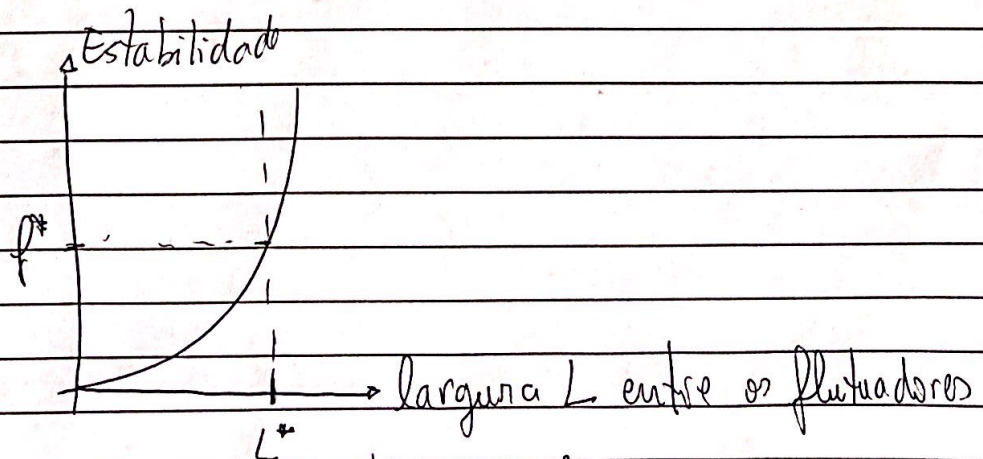 Estabilidade
f*
largura L entre os flutuadores
L*